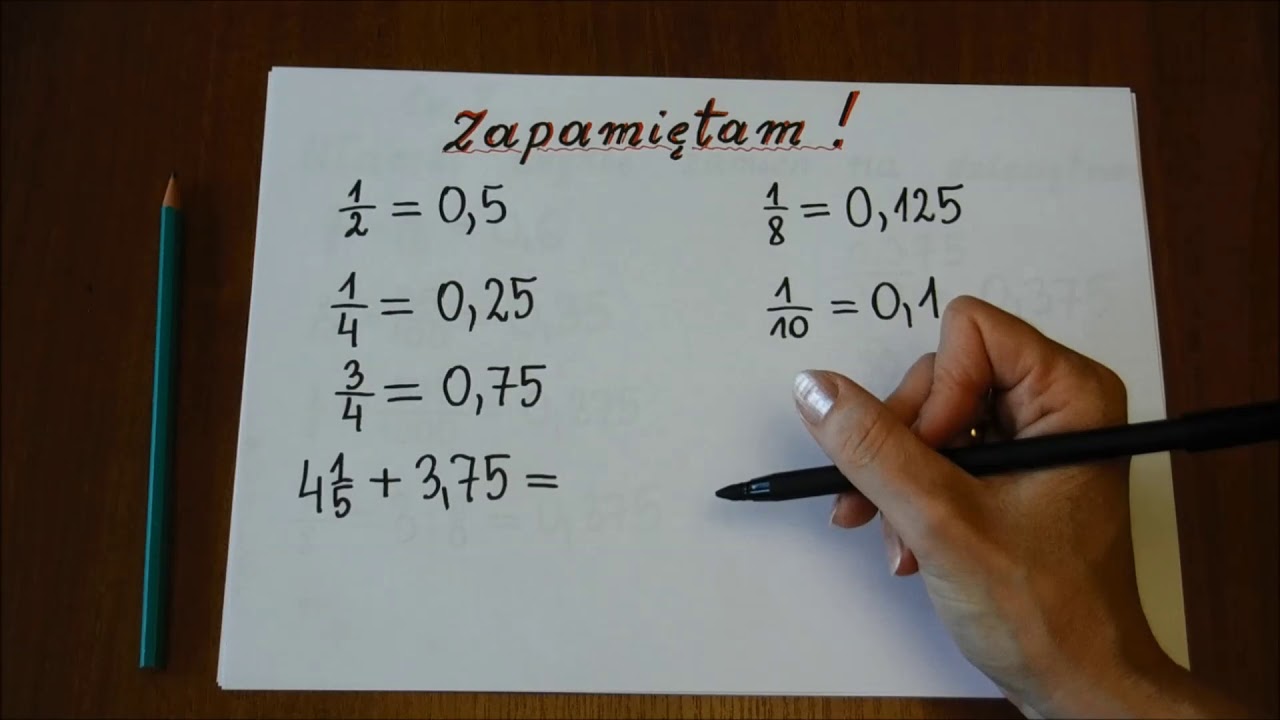 Zapamiętam!
1/2 = 0,5
1/4 = 0,25
3/4 = 0,75
4 1/5 + 3,75 =
1/8 = 0,125
1/10 = 0,1